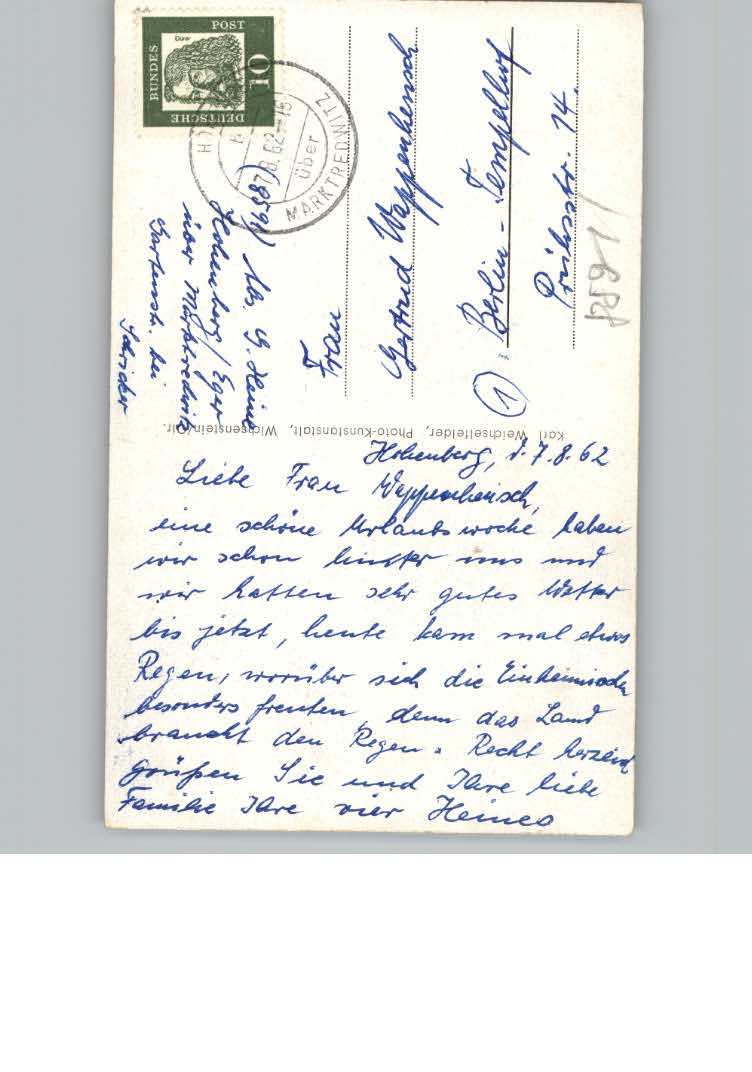 Hohenberg, d. 7.8.62
Liebe Frau Wappenhensch,
eine schöne Urlaubswoche haben
wir schon hinter uns und
wir hatten sehr gutes Wetter
bis jetzt, heute kam mal etwas
Regen, worüber sich die Einheimischen
besonders freuten, denn das Land
braucht den Regen. Recht herzlich
grüßen Sie und Ihre liebe
Familie Ihre vier Heines
Frau
Gertrud Wappenhensch
(1) Berlin-Tempelhof
str. 14.
8591
(8591) Abs. G. Heine
Hohenberg/Eger
über Marktredwitz
Gartenstr. bei
Schricker
Karl Weichselfelder, Photo-Kunstanstalt, Wichsenstein/Ofr.
DEUTSCHE
BUNDES
POST
10
Dürer
7.8.62-16
über
MARKTREDWITZ